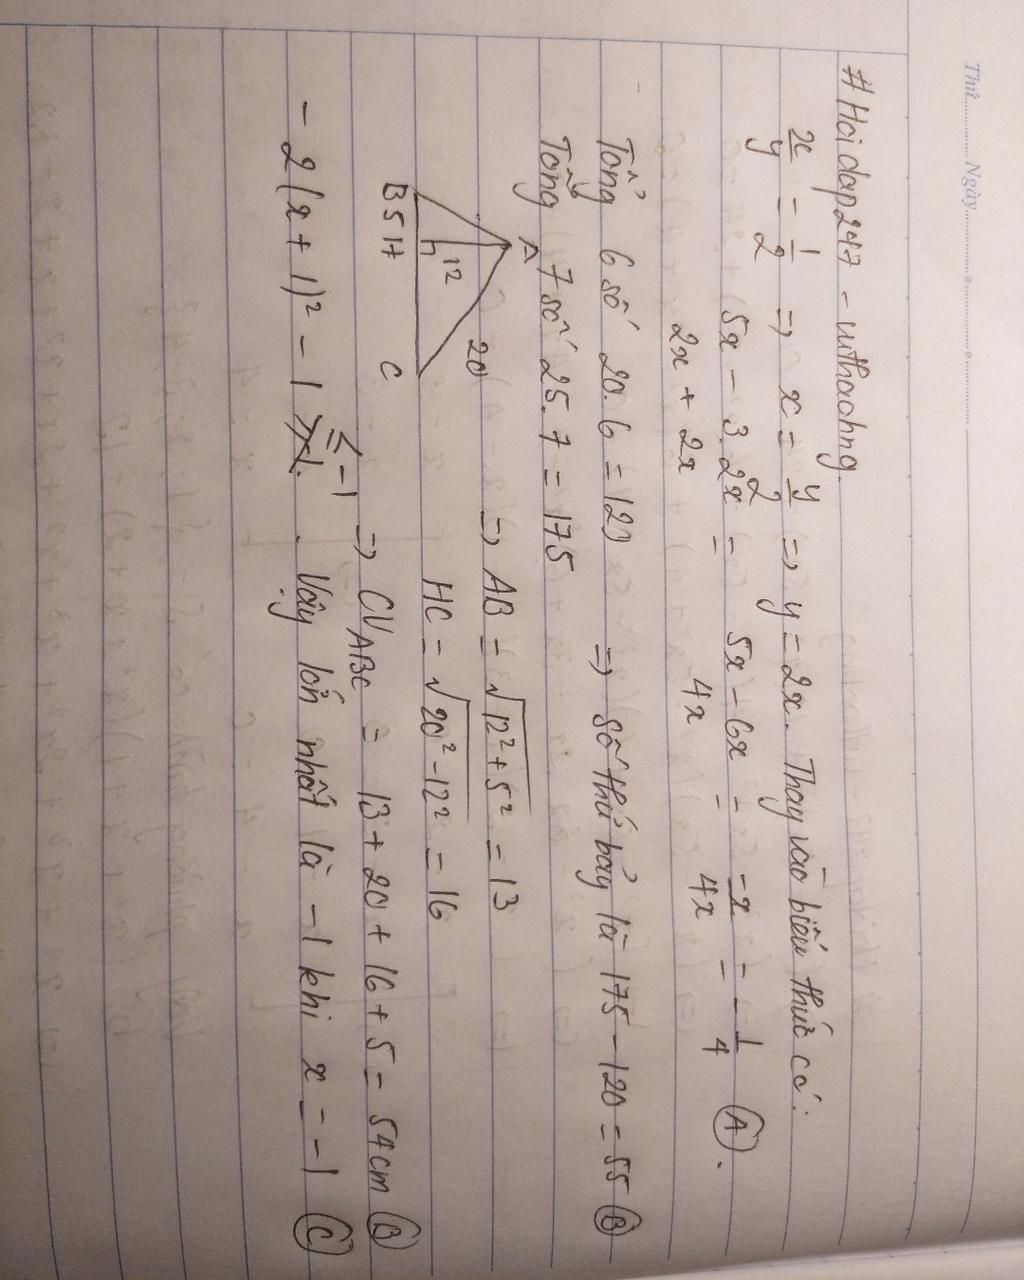 Thứ.............. Ngày..............
# Hoidap247 - nthachng
x/y = 1/2 => x = y/2 => y = 2x. Thay vào biểu thức có:
(5x - 3.2x)/(2x + 2x) = (5x - 6x)/4x = -x/4x = -1/4 (A).
Tổng 6 số 20.6 = 120 => số thứ bảy là 175 - 120 = 55 (B)
Tổng 7 số 25.7 = 175
A
20
12
B 5 H C
=> AB = √(12² + 5²) = 13
HC = √(20² - 12²) = 16
=> CV ABC = 13 + 20 + 16 + 5 = 54 cm (B)
- 2(x + 1)² - 1 ≤ -1. Vậy lớn nhất là -1 khi x = -1 (C)